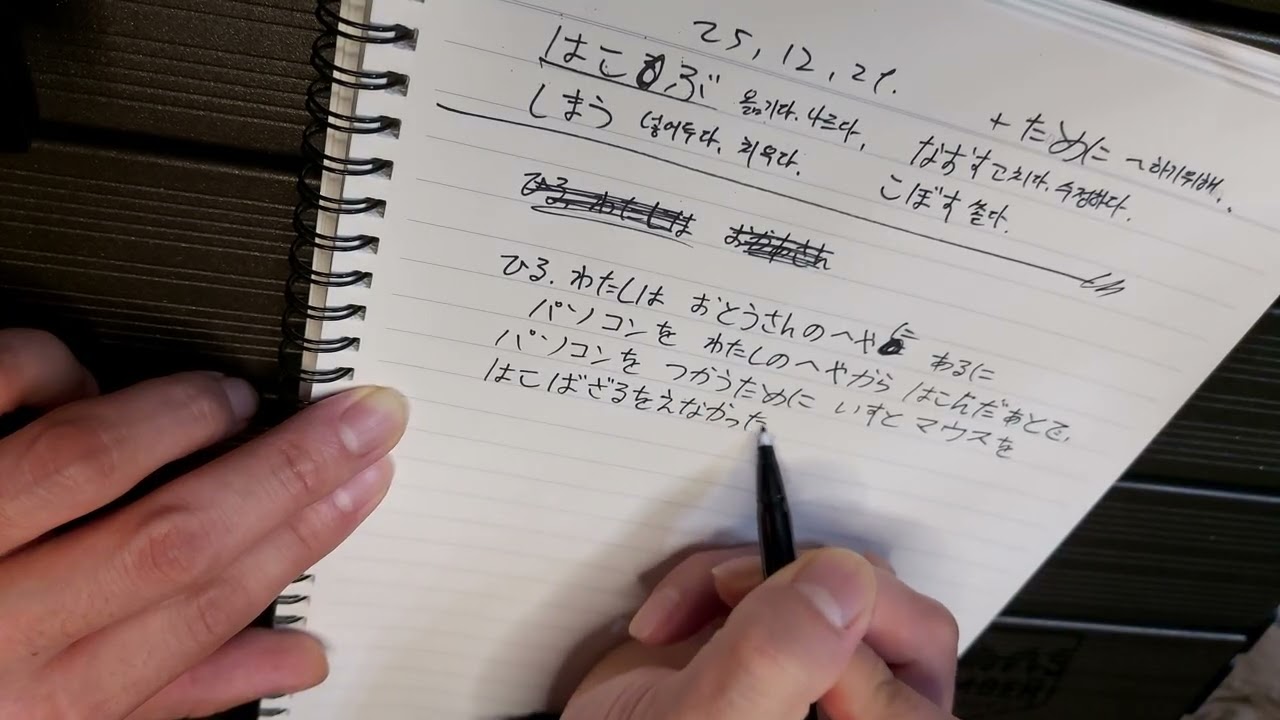 25, 12, 21.
はこぶ 옮기다. 나르다.
+ ために ~하기위해.
しまう 넣어두다. 치우다.
なおす 고치다. 수정하다.
こぼす 쏟다.
ひる. わたしは おとうさんのへやに あるに
パソコンを わたしのへやから はこんだあとで,
パソコンを つかうために いすと マウスを
はこばざるをえなかった